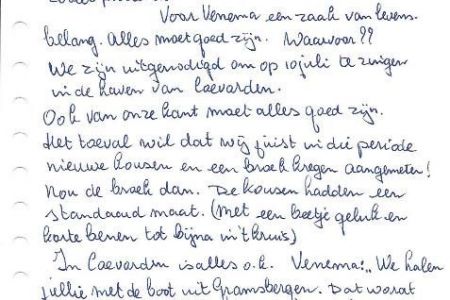 Voor Venema een zaak van levens-
belang. Alles moet goed zijn. Waarvoor??
We zijn uitgenodigd om op 10 juli te zingen
in de haven van Coevorden.
Ook van onze kant moet alles goed zijn.
Het toeval wil dat wij juist in die periode
nieuwe kousen en een broek kregen aangemeten!
Nou de broek dan. De kousen hadden een
standaard maat. (met een beetje geluk en
korte benen tot bijna in 't kruis)
In Coevorden is alles o.k. Venema: "We halen
jullie met de boot uit Gramsbergen. Dat wordt